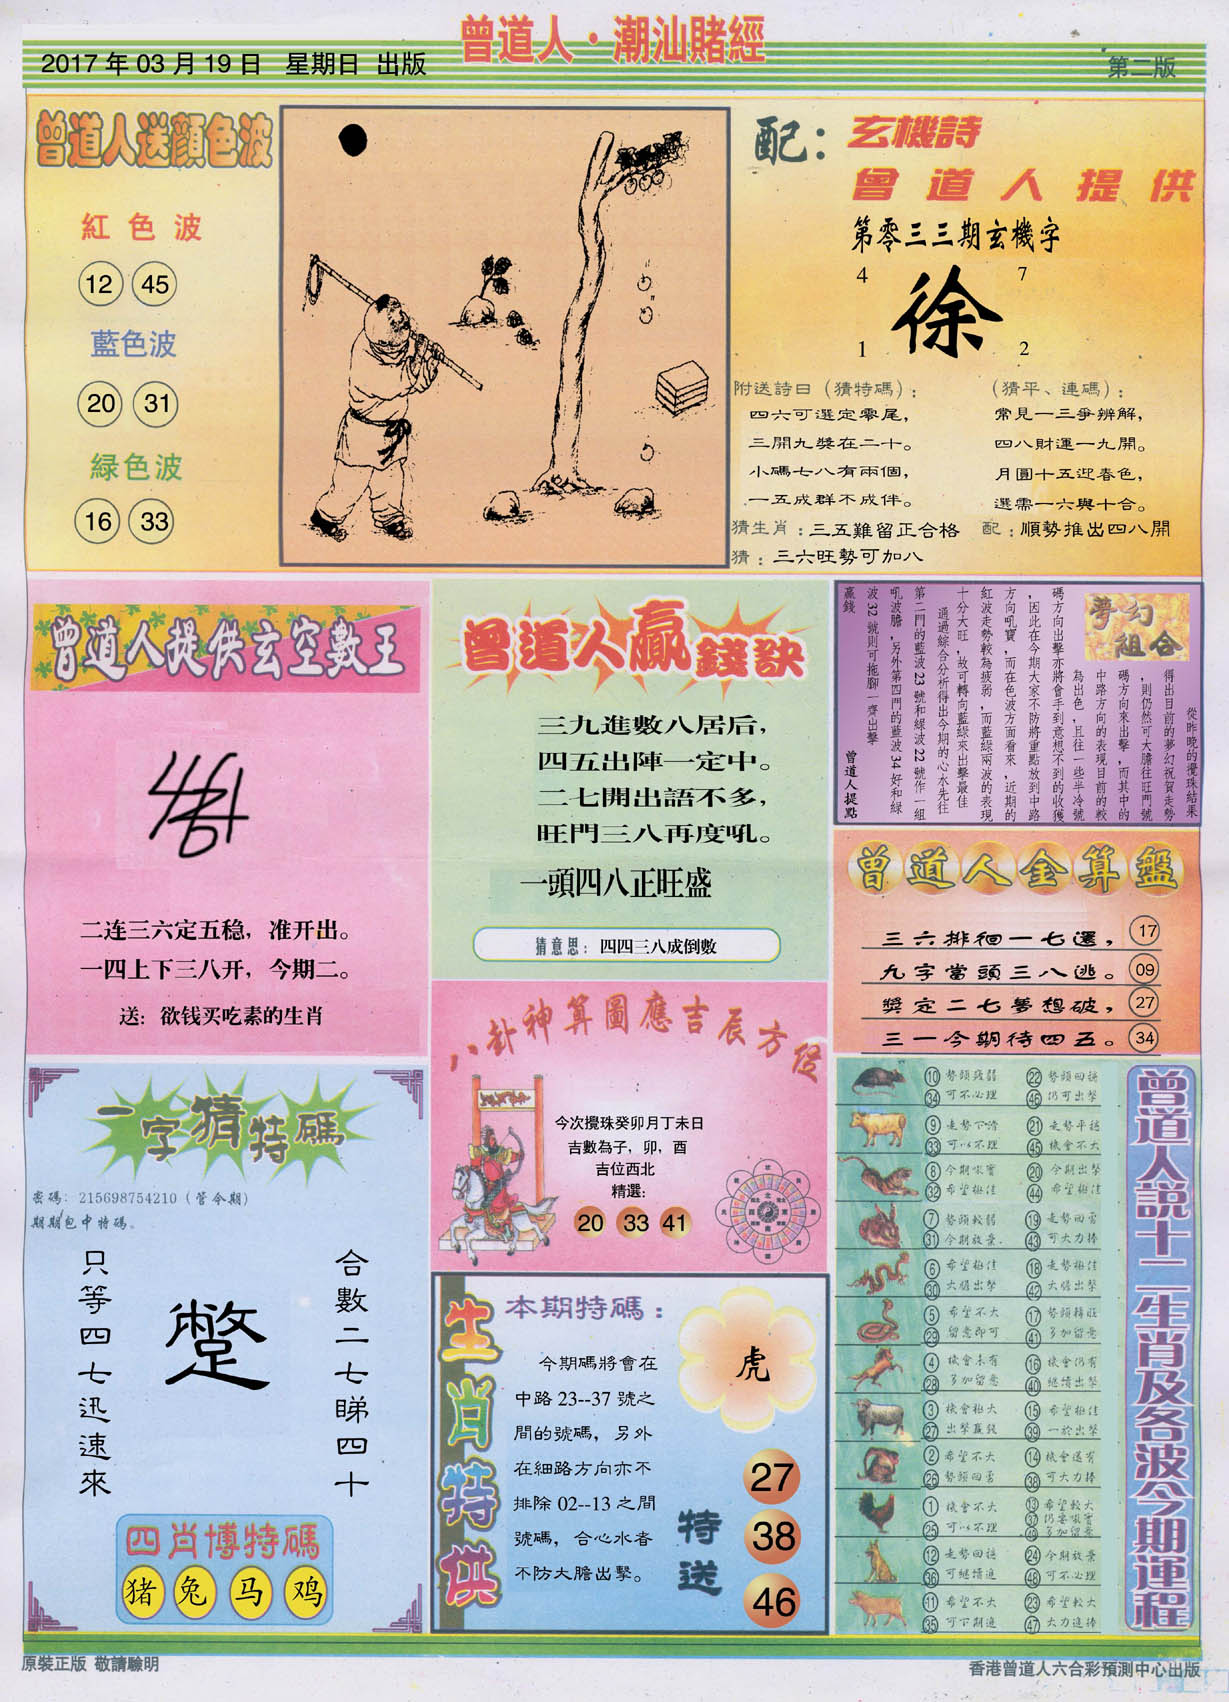 曾道人·潮汕賭經
2017 年 03 月 19 日 星期日 出版
第二版
曾道人送顏色波
紅色波
12 45
藍色波
20 31
緑色波
16 33
配：玄機詩
曾道人提供
第零三三期玄機字
4 7
徐
1 2
附送詩曰（猜特碼）：
四六可選定零尾，
三開九獎在二十。
小碼七八有兩個，
一五成群不成伴。
（猜平、連碼）：
常見一三爭辨解，
四八財運一九開。
月圓十五迎春色，
選需一六與十合。
猜生肖：三五難留正合格
配：順勢推出四八開
猜：三六旺勢可加八
曾道人提供玄空數王
二连三六定五稳，准开出。
一四上下三八开，今期二。
送：欲钱买吃素的生肖
曾道人贏錢訣
三九進數八居后，
四五出陣一定中。
二七開出語不多，
旺門三八再度吼。
一頭四八正旺盛
猜意思：四四三八成倒數
夢幻組合
從昨晚的攪珠結果
得出目前的夢幻祝賀走勢
，則仍然可大膽往旺門號
碼方向來出擊，而其中的
中路方向的表現目前的較
為出色，且往一些半冷號
碼方向出擊亦將會手到意想不到的收獲
，因此在今期大家不防將重點放到中路
方向吼寶，而在色波方面看來，近期的
紅波走勢較為疲弱，而藍綠兩波的表現
十分大旺，故可轉向藍綠來出擊最佳
通過綜合分析得出今期的心水先往
第二門的藍波 23 號和綠波 22 號作一組
吼波膽，另外第四門的藍波 34 好和綠
波 32 號則可拖腳一齊出擊
贏錢
曾道人提點
曾道人金算盤
三六排徊一七還， 17
九字當頭三八逃。 09
獎定二七夢想破， 27
三一今期待四五。 34
八卦神算圖應吉辰方位
今次攪珠癸卯月丁未日
吉數為子，卯，酉
吉位西北
精選：
20 33 41
一字猜特碼
密碼：215698754210（管今期）
期期包中特碼。
合數二七睇四十
蹩
只等四七迅速來
四肖博特碼
猪 兔 马 鸡
生肖特供
本期特碼：
虎
今期碼將會在
中路 23--37 號之
間的號碼，另外
在細路方向亦不
排除 02--13 之間
號碼，合心水者
不防大膽出擊。
特送
27
38
46
曾道人説十二生肖及各波今期運程
10 勢頭疲弱 22 勢頭回揚
34 可不必理 46 仍可出擊
9 走勢下滑 21 走勢平穩
33 可以不理 45 機會不大
8 今期吼寶 20 今期出擊
32 希望極佳 44 希望極佳
7 勢頭較弱 19 走勢回勇
31 今期放棄 43 可大力捧
6 希望極佳 18 走勢極佳
30 大膽出擊 42 大膽出擊
5 希望不大 17 勢頭轉旺
29 留意即可 41 多加留意
4 機會未有 16 機會仍有
28 多加留意 40 繼續出擊
3 機會極大 15 希望極佳
27 出擊贏錢 39 一於出擊
2 希望不大 14 機會還有
26 勢頭回勇 38 可大力捧
1 機會不大 13 希望較大
25 可以不理 37 仍要吼寶
49 多加留意
12 走勢回穩 24 今期放棄
36 可繼續追 48 可不必理
11 希望不大 23 希望較大
35 可下期追 47 大力追捧
原裝正版 敬請驗明
香港曾道人六合彩預測中心出版